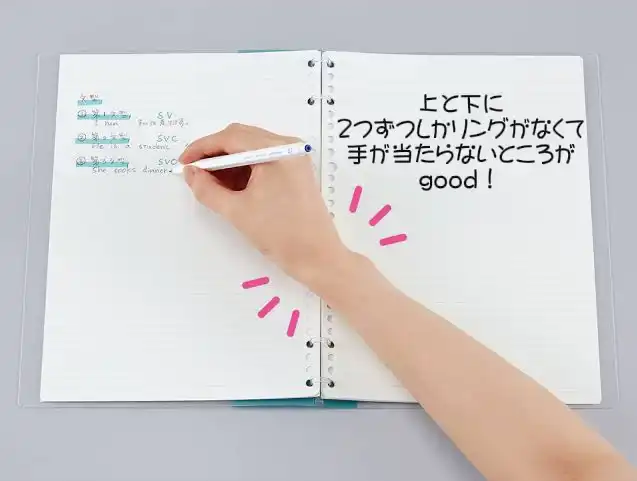 上と下に
2つずつしかリングがなくて
手が当たらないところが
good！
文型
① 第1文型 SV
I run
② 第2文型 SVC
He is a student.
③ 第3文型 SVO
She cooks dinner.